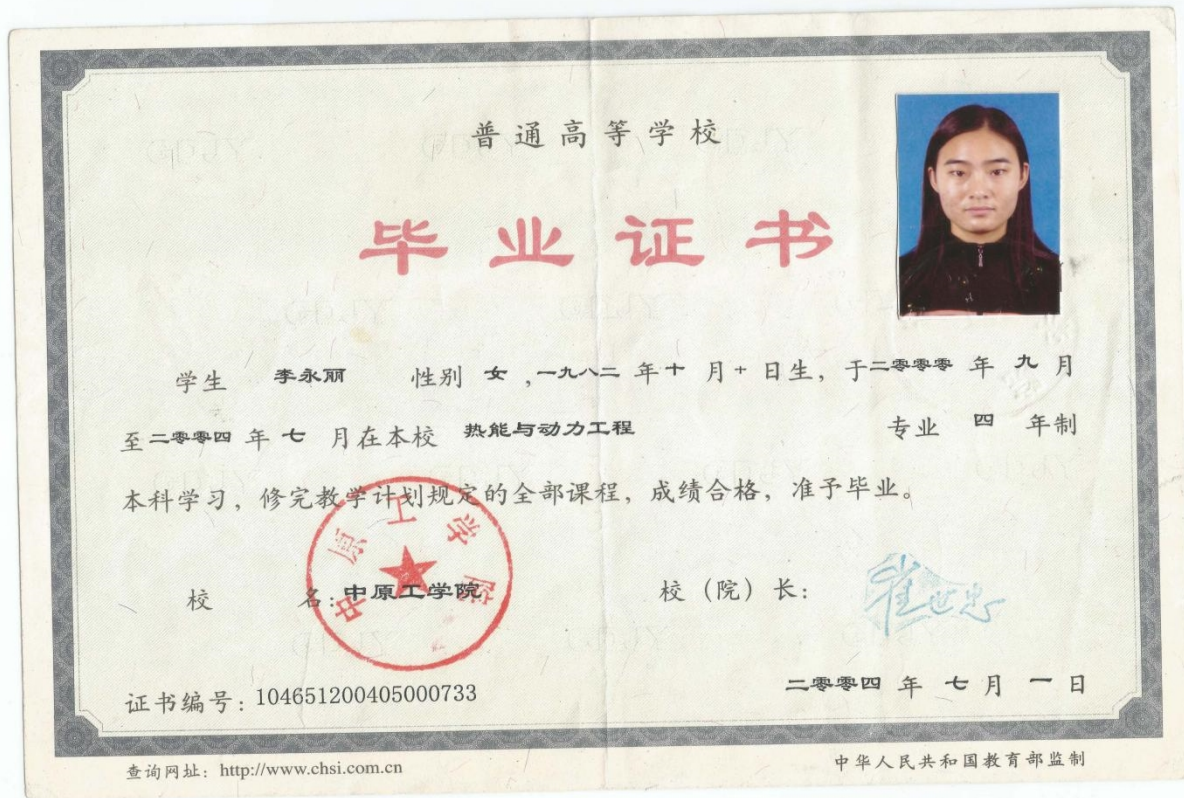 普通高等学校
毕业证书
学生 李永丽 性别 女,一九八二 年十 月十 日生,于二零零零 年 九 月
至二零零四 年 七 月在本校 热能与动力工程 专业 四 年制
本科学习,修完教学计划规定的全部课程,成绩合格,准予毕业。
中原工学院
校 名:中原工学院 校(院)长:崔世忠
证书编号:104651200405000733 二零零四 年 七 月 一 日
查询网址:http://www.chsi.com.cn 中华人民共和国教育部监制